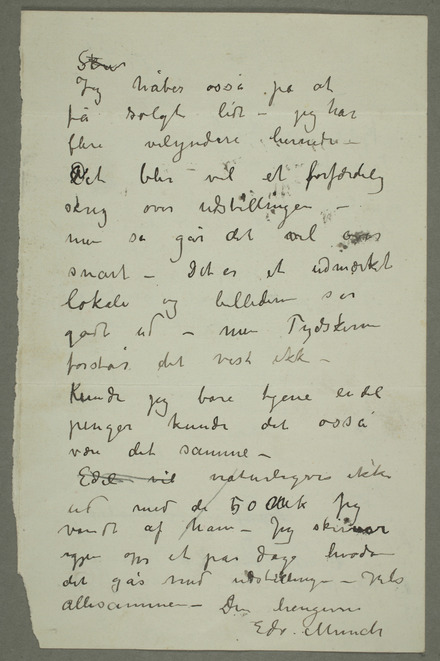 Jeg håber også på at
få solgt lidt – jeg har
flere velyndere hernede –
Det blir vel et forfærdelig
skrig over udstillingen –
men så går det vel over
snart – Det er et udmærket
lokale og billederne ser
godt ud – men Tydskerne
forstår det vist ikke –
Kunde jeg bare tjene endel
penger kunde det også
være det samme –
Edel vil naturligvis ikke
ud med de 50 Mk jeg
vandt af ham – Jeg skriver
igjen om et par dage hvordan
det går med udstillingen – Hils
allesammen – Din hengivne
Edv. Munch